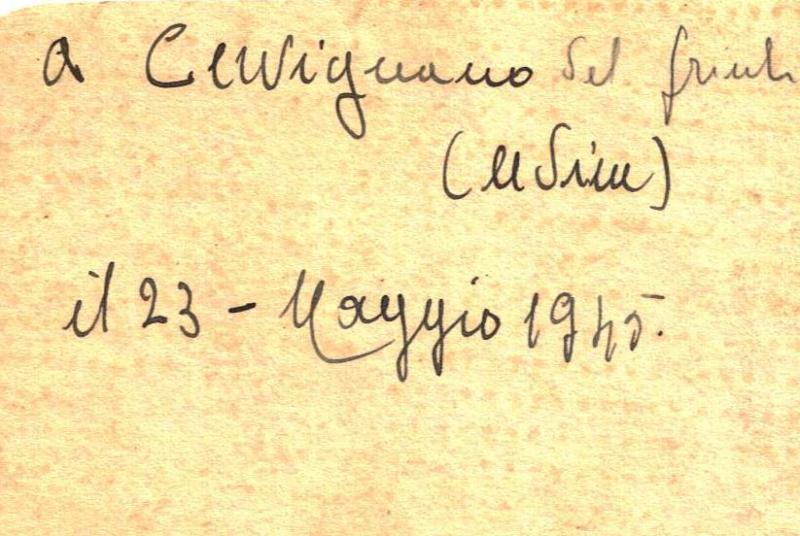 a Cervignano del friuli
(Udine)
il 23 - Maggio 1945.